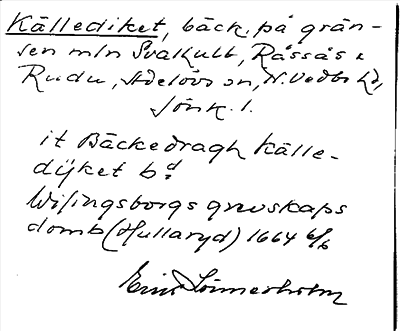 Källediket, bäck, på grän-
sen mln Svalhult, Råssås &
Rudu, Adelövs sn, N. Vedbo hd,
Jönk. l.
it Bäckedragh Källe-
dijket bd:
Wisingsborgs grevskaps
domb (Hullaryd) 1664 6/6
Einar Lönnerholm